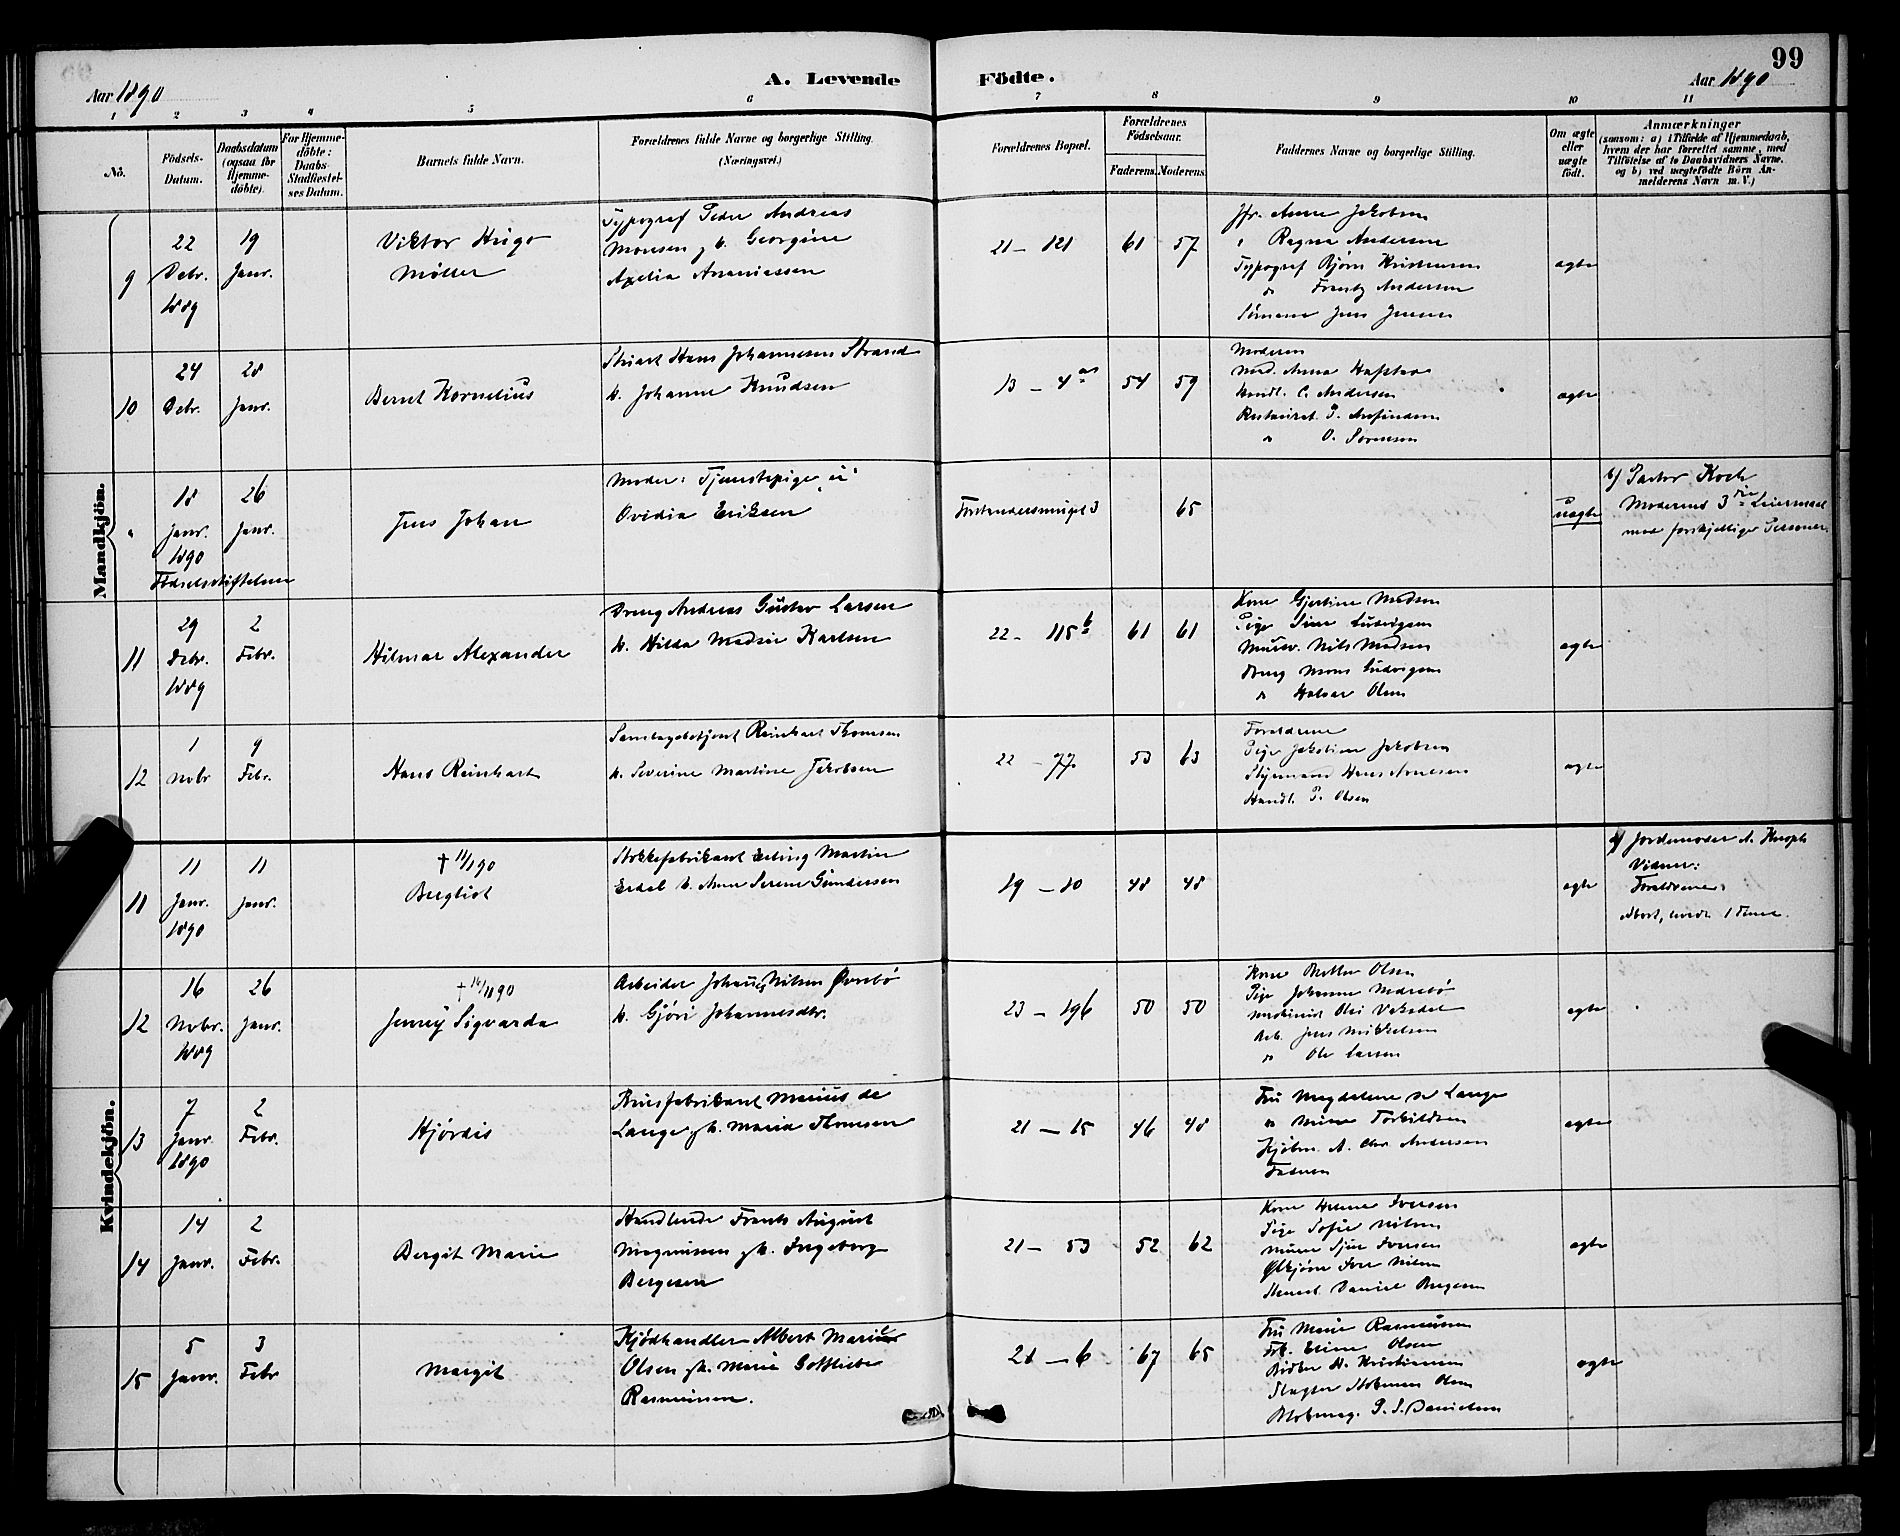 99
Aar 1890
A. Levende Födte.
Aar 1890
1 2 3 4 5 6 7 8 9 10 11
No.
Födsels-Datum.
Daabsdatum (ogsaa for Hjemmedöbte).
For Hjemmedöbte: Daabs-Stadfæstelses Datum.
Barnets fulde Navn.
Forældrenes fulde Navne og borgerlige Stilling.
(Næringsvei.)
Forældrenes Bopæl.
Forældrenes Födselsaar.
Faderens. Moderens.
Faddernes Navne og borgerlige Stilling.
Om ægte eller uægte födt.
Anmærkninger
(saasom: a) i Tilfælde af Hjemmedaab, hvem der har forrettet samme, med Tilföielse af to Daabsvidners Navne. og b) ved uægtefödte Börn Anmelderens Navn m. V.)
Mandkjön.
9
22 Debr. 1889
19 Janr.
Viktor Hugo
Möller
Typograf Peder Andreas
Monsen g. h. Georgine
Axelia Ananiassen
21 - 121
61 57
Jfr. Anna Jakobsen
" Ragna Andersen
Typograf Bjørn Kristensen
" Frantz Andersen
Sömand Jens Jensen
ægte
10
24 Debr.
28 Janr.
Bernt Kornelius
Hans Johannesen Strand
h. Johanne Knudsen
13 - 4
54 59
Moderen
Mad. Anna
Handl. C. Andersen
Restaurat. P.
" O. Sörensen
ægte
"
18 Janr. 1890
26 Janr.
Födselsstiftelsen
Jens Johan
Moder: Tjenestepige, ú
Ovidia Eriksen
Forstandersmuget 3
65
uægte
b) Pastor Koch
Moderens 3die Leiermaal
med forskjellige Personer.
11
29 Debr. 1889
2 Febr.
Hilmar Alexander
Dreng Andreas Gustav Larsen
h. Hilda Madsine Karlsen
22 - 115 b
61 61
Kone Gjertine Madsen
Pige Sine Ludvigsen
Murer. Nils Madsen
Dreng Mons Ludvigsen
" Halvar Olsen
ægte
12
1 Novbr
9 Febr.
Hans Reinhart
Reinhart Thomsen
h. Severine Martine Jakobsen
22 - 77
53 63
Forældrene
Pige Jakobine Jakobsen
Styrmand Hans Arnesen
Handl. P. Olsen
ægte
Kvindekjön.
11
11 Janr. 1890
11 Janr.
† 11/1 90
Bergliot
Stokkefabrikant Erling Martin
Erdal h. Anna Serene Gundersen
19 - 10
48 48
ægte
a) Jordemoder A. Knoph
Vidner:
Forældrene.
Abort, levede 1 Time.
12
16 Novbr. 1889
26 Janr.
† 16/1 90
Jenny Sigvarda
Arbeider Johannes Nilsen Övrebö
h. Gjöri Johannesdtr.
23 - 196
50 50
Kone Olsen
Pige Johanne Nedrebö
Maskinist Oli Vaksdal
Arb. Jens Mikkelsen
" Ole Larsen
ægte
13
7 Janr. 1890
2 Febr.
Hjördis
Brusfabrikant Marius de
Lange g. h. Maria Thomsen
21 - 15
46 48
Fru Magdalene de Lange
" Mina Torkildsen
Kjöbm. A. Chr Andersen
Faderen
ægte
14
14 Janr.
2 Febr.
Bergit Marie
Handlende Frants August
Magnusen g. h. Ingeborg
Bergesen
21 - 53
52 62
Kone Helene Iversen
Pige Sofie Nilsen
Murer Sjur Iversen
Iver Nilsen
Daniel Bergesen
ægte
15
5 Janr.
3 Febr
Margit
Kjödhandler Albert Marius
Olsen g. h. Marie Gottliebe
Rasmussen.
21 - 6
67 65
Fru Marie Rasmussen
Frk. Olsen
H. Kristiansen
Slagter Olsen
P. S. Danielsen
ægte